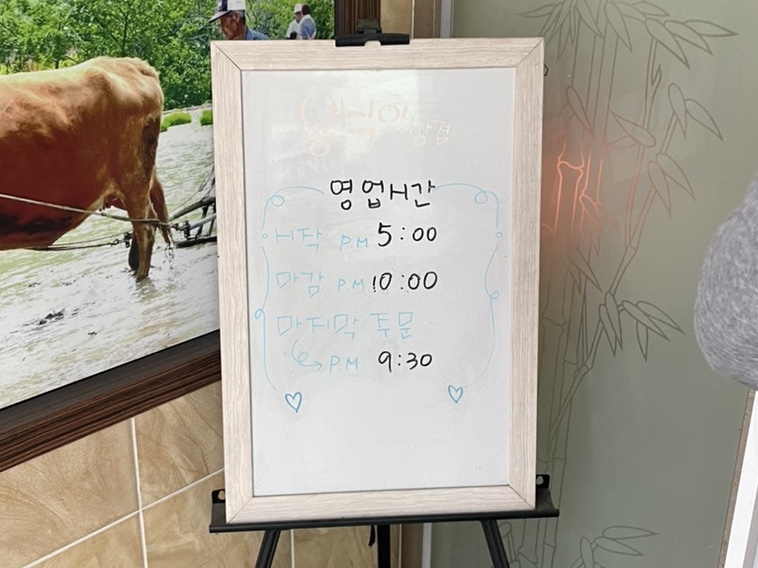 영업시간
시작 P.M 5:00
마감 P.M 10:00
마지막 주문
↳ P.M 9:30